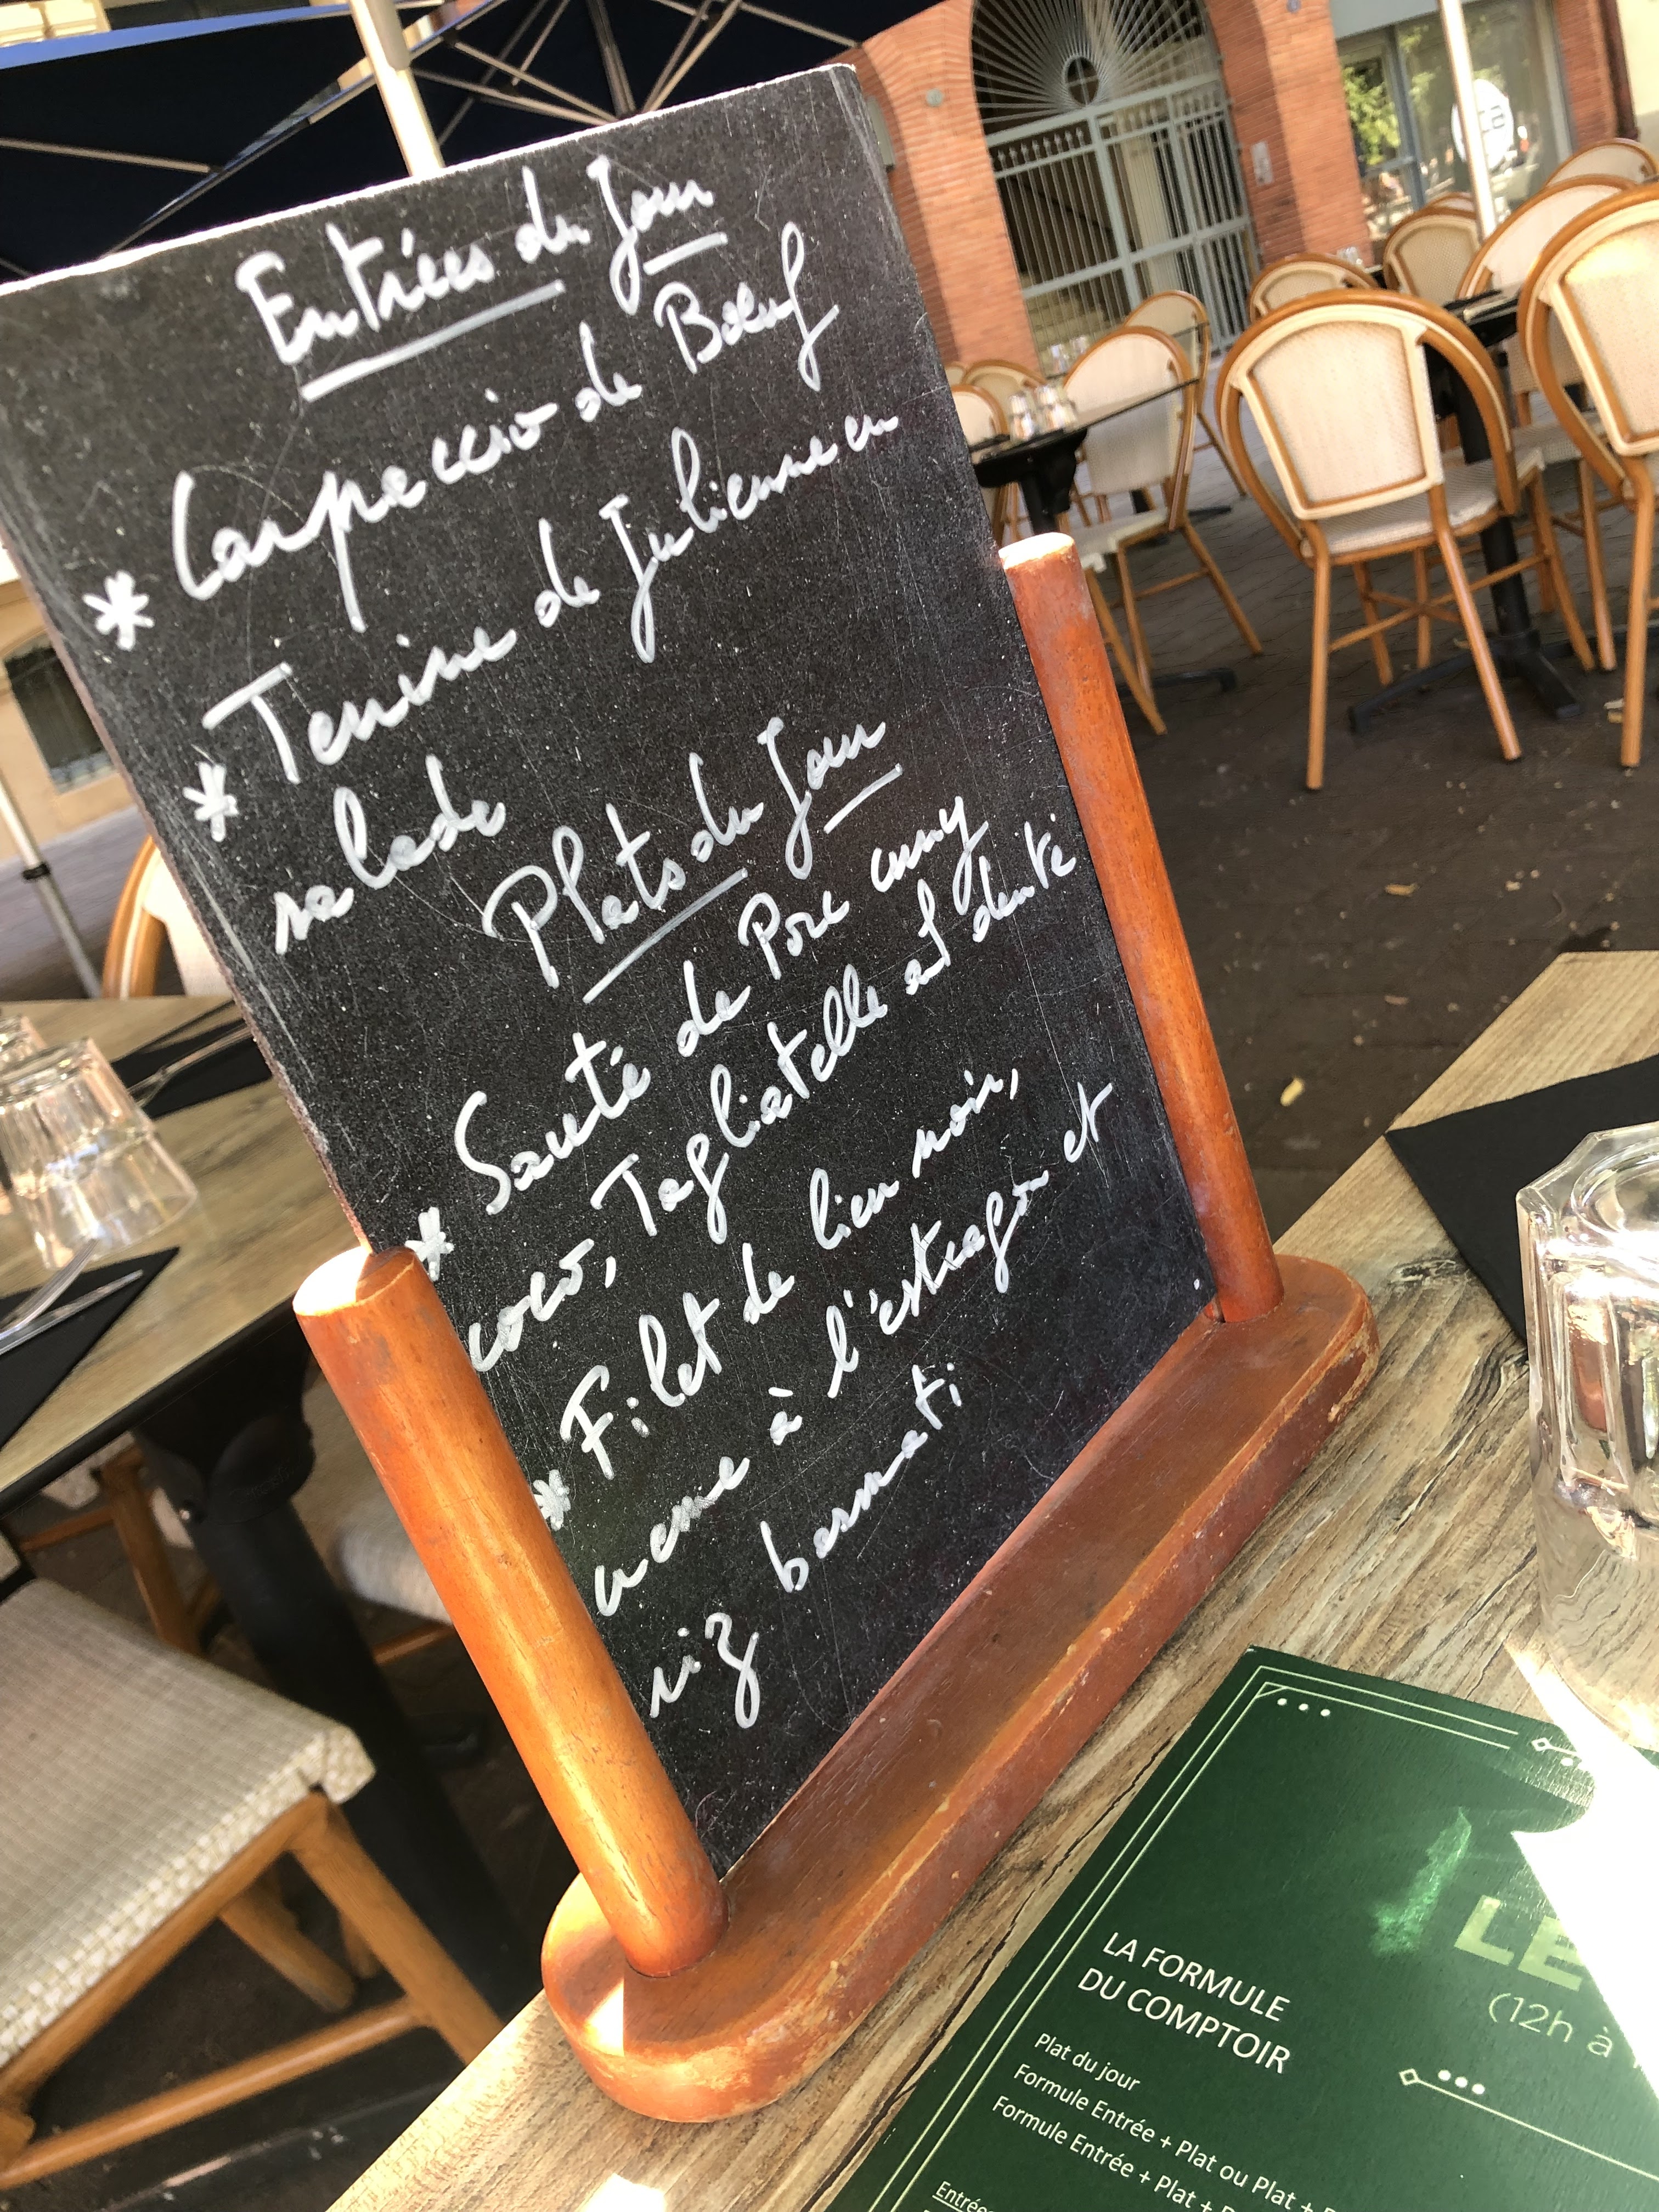 Entrées du Jour
* Carpaccio de Bœuf
* Terrine de Julienne en
salade
Plats du Jour
* Sauté de Porc curry
coco, Tagliatelle al denté
* Filet de lieu noir,
creme à l'estragon et
riz basmati
LE
(12h à
LA FORMULE
DU COMPTOIR
Plat du jour
Formule Entrée + Plat ou Plat +
Formule Entrée + Plat +
Entrée